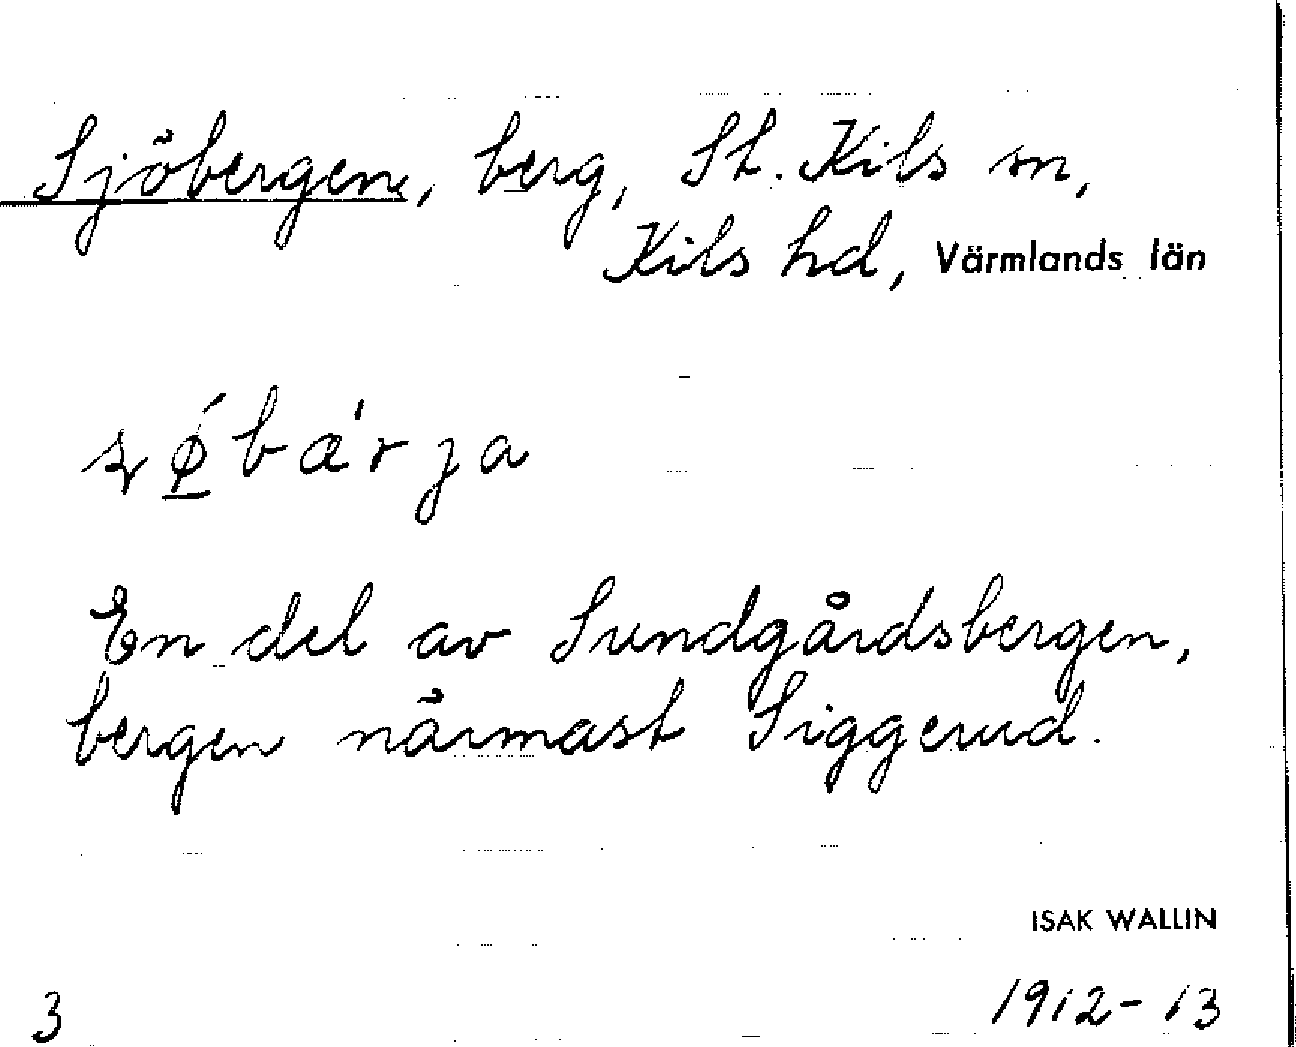 Sjöbergen, berg, St. Kils sn,
Kils hd, Värmlands län
En del av Sundgårdsbergen,
bergen närmast Siggerud.
ISAK WALLIN
3 1912-13